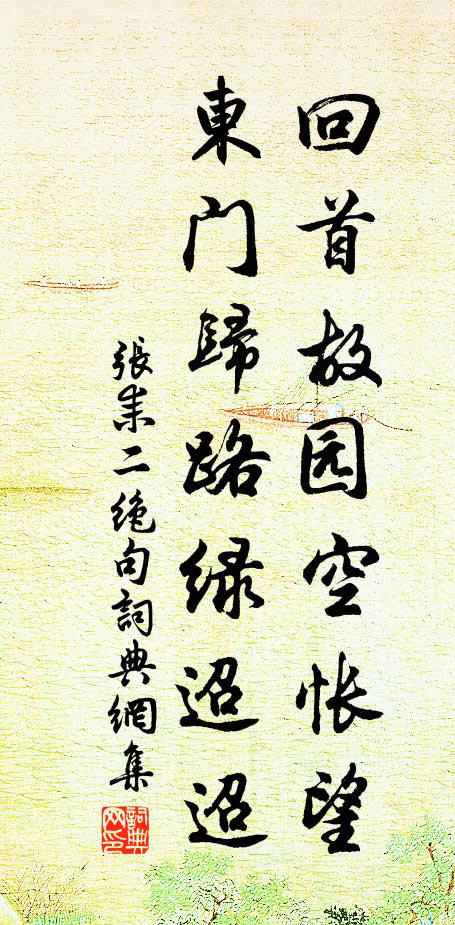 回首故园空怅望
東门歸路绿迢迢
張耒二绝句詞典網集
詞典网印